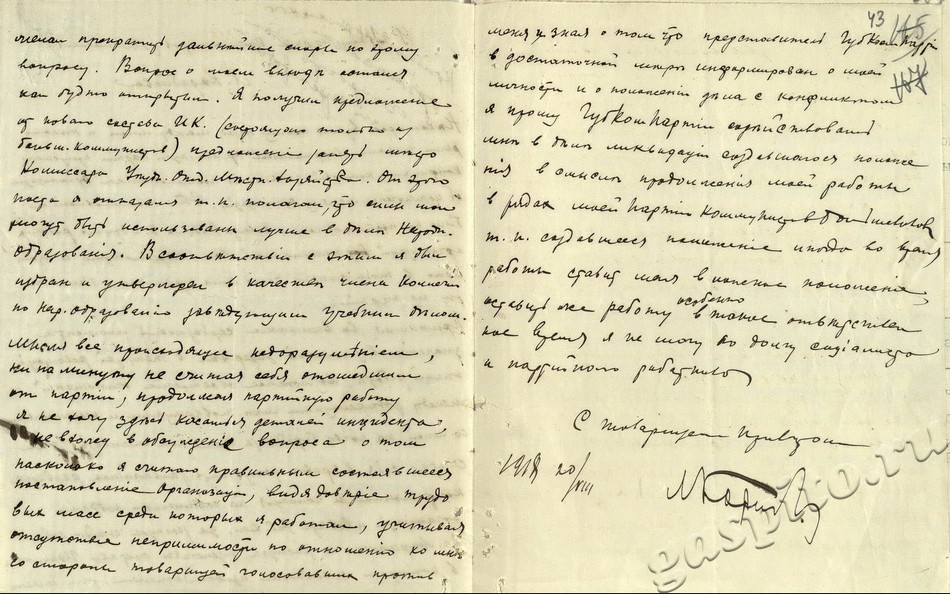 прекратить дальнейшие споры по этому
вопросу. Вопрос о моем выходе остался
как будто открытым. Я получил предложение
от нового состава И.К. (состоящего только из
больш. коммунистов) предложение занять место
Комиссара Отд. Хозяйства. От этого
поста я отказался т.к. полагал, что силы мои
могут быть использованы лучше в деле Народн.
образования. В соответствии с этим я был
избран и утвержден в качестве члена Комиссии
по Нар. образованию заведующим учебным делом.
Мысля все происходящее недоразумѣнием,
ни на минуту не считая себя отошедшим
от партии, продолжая партийную работу
я не хочу здесь касаться деталей инцидента,
не вхожу в обсуждение вопроса о том
насколько я считаю правильным состоявшееся
постановление Организации, видя довѣрие трудо
вых масс среди которых я работаю, учитывая
отсутствие непримимости по отношению ко мне
со стороны товарищей голосовавших против
43
меня и зная о том что представитель Губком Партии
в достаточной мере информирован о моей
личности и о положении дела с конфликтом
я прошу Губком Партии содействовать
мне в деле ликвидации создавшегося положе
ния в смысле продолжения моей работы
в рядах моей Партии Коммунистов Большевиков
т.к. создавшееся положение иногда во время
работы ставит меня в положение,
оставить же работу особенно в такое ответствен
ное время я не могу по долгу социалиста
и партийного работника
С товарищеским приветом
1918 20/VIII
gaspiko.ru